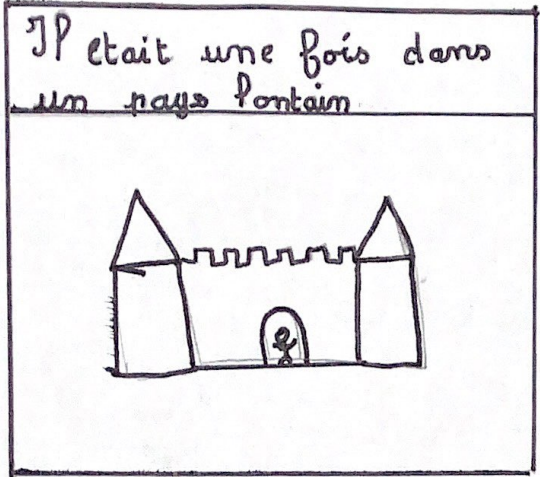 Il etait une fois dans
un pays lontain